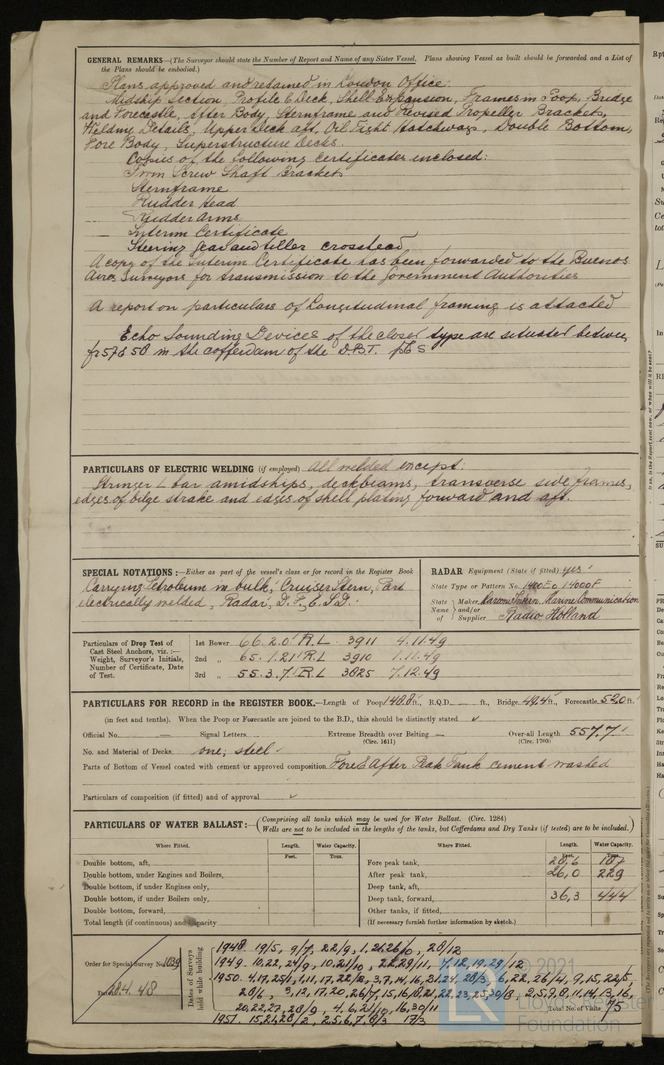 GENERAL REMARKS—(The Surveyor should state the Number of Report and Name of any Sister Vessel. Plans showing Vessel as built should be forwarded and a List of
the Plans should be embodied.)
Plans approved and retained in London Office:
Midship Section, Profile & Deck, Shell Expansion, Frames in Poop, Bridge
and Forecastle, After Body, Sternframe and Revised Propeller Brackets,
Welding Details, Upper Deck aft, Oil Tight Hatchways, Double Bottom,
Fore Body, Superstructure Decks.
Copies of the following Certificates enclosed:
Twin Screw Shaft Brackets
Sternframe
Rudder Head
Rudder Arms
Interim Certificate
Steering Gear and tiller crosshead
A copy of the Interim Certificate has been forwarded to the Buenos
Aires Surveyors for transmission to the Government Authorities
A report on particulars of Longitudinal framing is attached
Echo Sounding Devices of the closed type are situated between
fr 57 & 58 in the cofferdam of the D.B.T. p & S
PARTICULARS OF ELECTRIC WELDING (if employed) All welded except:
Stringer L bar amidships, deckbeams, transverse side frames,
edges of bilge strake and edges of shell plating forward and aft.
SPECIAL NOTATIONS:—Either as part of the vessel's class or for record in the Register Book
Carrying Petroleum in bulk, Cruiser Stern, Part
electrically welded, Radar, D.F., E.S.D.
RADAR Equipment (State if fitted) yes
State Type or Pattern No.
State Name of Maker and/or Supplier
Marine Communication
Radio Holland
Particulars of Drop Test of
Cast Steel Anchors, viz.:—
Weight, Surveyor's Initials,
Number of Certificate, Date
of Test.
1st Bower 66.2.0 R.L 3911 4.11.49
2nd „ 65.1.21 R.L 3910 1.11.49
3rd „ 55.3.7 R.L 3825 7.12.49
PARTICULARS FOR RECORD in the REGISTER BOOK.—Length of Poop 148.8 ft., R.Q.D. — ft., Bridge 49.4 ft., Forecastle 52.0 ft.
(in feet and tenths). When the Poop or Forecastle are joined to the B.D., this should be distinctly stated
Official No. — Signal Letters — Extreme Breadth over Belting — Over-all Length 557.7'
(Circ. 1611) (Circ. 1703)
No. and Material of Decks one, steel
Parts of Bottom of Vessel coated with cement or approved composition Fore & After Peak Tank cement washed
Particulars of composition (if fitted) and of approval
PARTICULARS OF WATER BALLAST:— (Comprising all tanks which may be used for Water Ballast. (Circ. 1284)
Wells are not to be included in the lengths of the tanks, but Cofferdams and Dry Tanks (if tested) are to be included.)
Where Fitted. Length. Water Capacity. Where Fitted. Length. Water Capacity.
Feet. Tons.
Double bottom, aft, Fore peak tank, 28,6 187
Double bottom, under Engines and Boilers, After peak tank, 26,0 229
Double bottom, if under Engines only, Deep tank, aft,
Double bottom, if under Boilers only, Deep tank, forward, 36,3 444
Double bottom, forward, Other tanks, if fitted,
Total length (if continuous) and Capacity (If necessary furnish further information by sketch.)
Order for Special Survey No. 1039
Date 28.4.48
Dates of Surveys held while building
1948 19/5, 9/7, 22/9, 28/12
1949 10.22, 24/9, 10.21/10, 22,29/11, 7,12,19,29/12
1950
1951
Total No. of Visits 75
© 2021
Lloyd's Register
Foundation